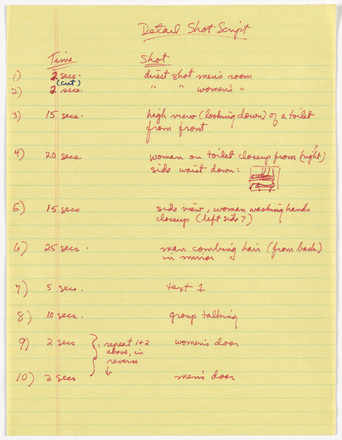 Detail Shot Script
Time Shot
1) 2 secs. direct shot men's room
(cut)
2) 2 secs. " " women's "
3) 15 secs. high view (looking down) of a toilet
from front
4) 20 secs. woman on toilet closeup from (right?)
side waist down:
5) 15 secs side view, woman washing hands
closeup (left side?)
6) 25 secs. man combing hair (from back)
in mirror
7) 5 secs. text 1
8) 10 secs. group talking
9) 2 secs repeat 1+2 women's door
above, in
reverse
10) 2 secs men's door